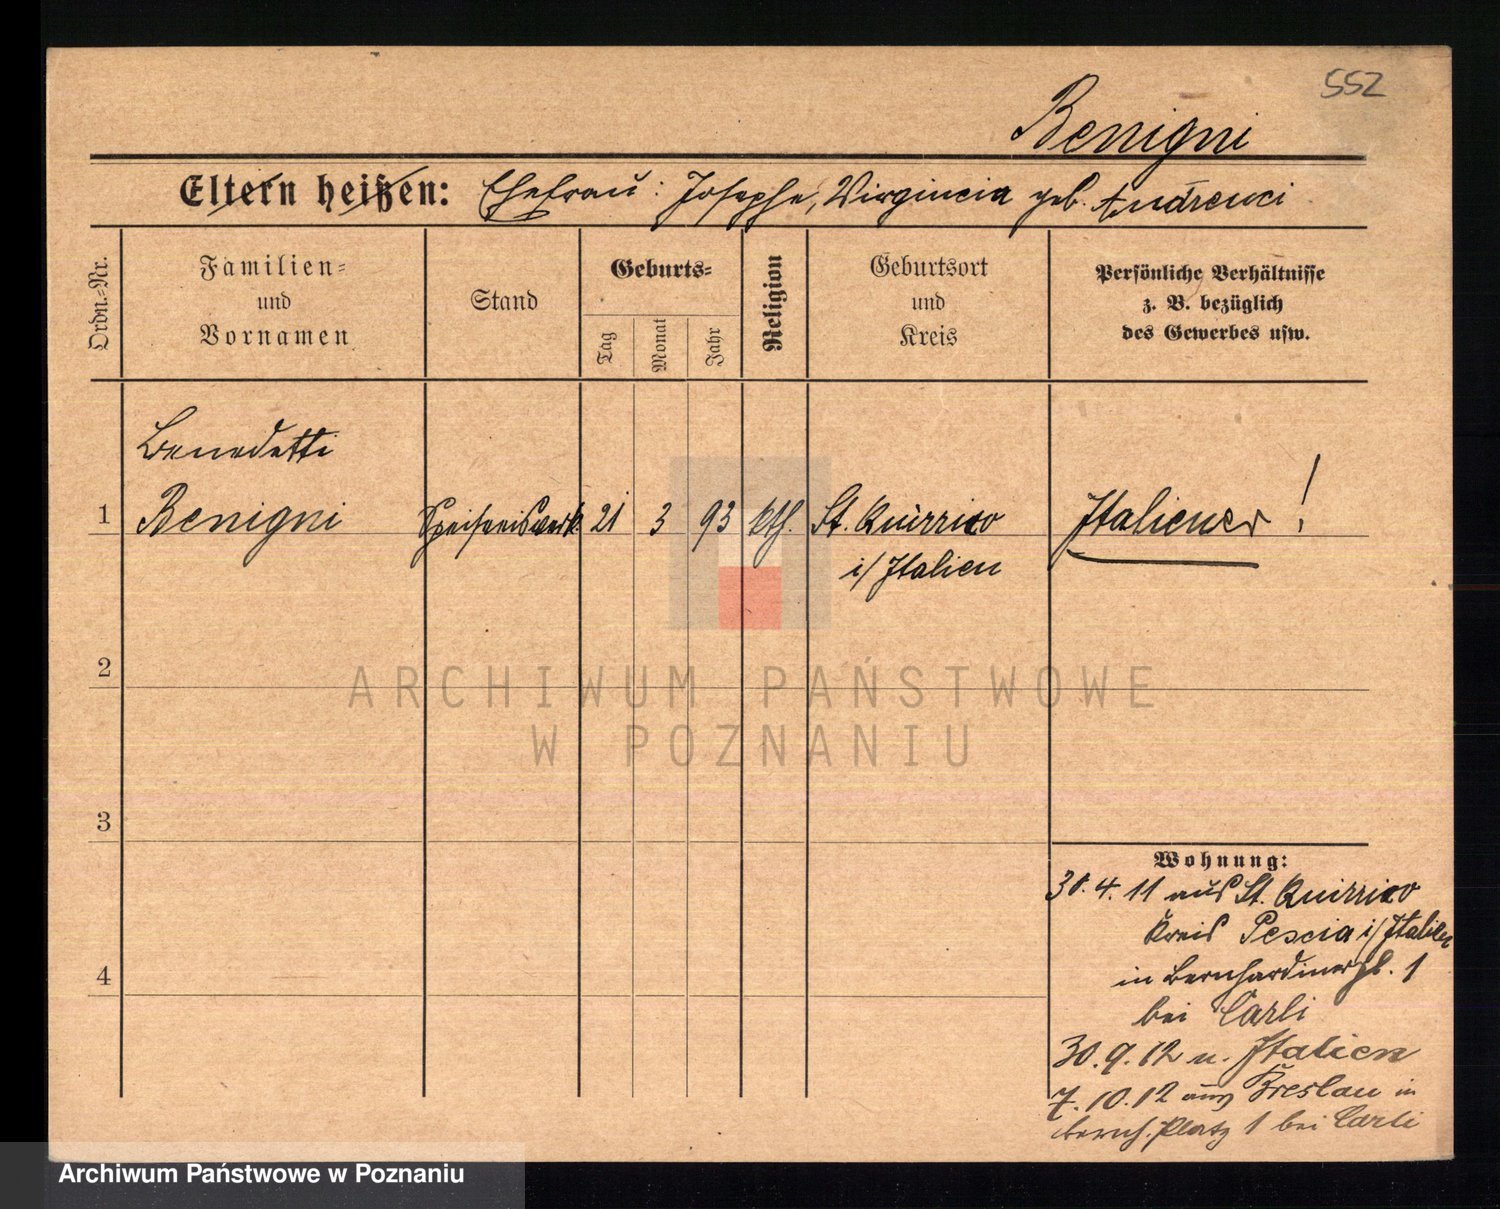 552
Benigni
Eltern heißen: Ehefrau: Josephe, Virgincia geb. Andreuci
Ordn.-Nr.
Familien-
und
Vornamen
Stand
Geburts-
Tag
Monat
Jahr
Religion
Geburtsort
und
Kreis
Persönliche Verhältnisse
z. B. bezüglich
des Gewerbes usw.
Benedetti
1 Benigni 21 3 93 kth. St. Quirrico Italiener!
i/ Italien
2
ARCHIWUM PAŃSTWOWE
W POZNANIU
3
Wohnung:
30.4.11 aus St. Quirrico
Kreis Pescia i/ Italien
4
in Bernhardinerpl. 1
bei Carli
30.9.12 n. Italien
7.10.12 aus Breslau in
Bernh. Platz 1 bei Carli
Archiwum Państwowe w Poznaniu